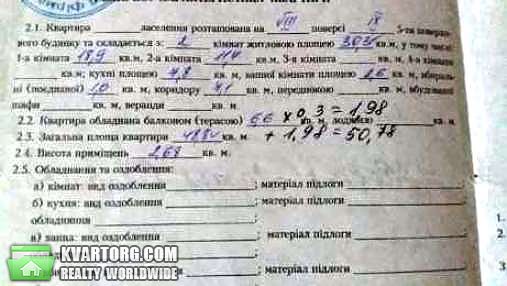 2.1. Квартира заселення розташована на VIII поверсі IX 5-ти поверх-
вого будинку та складається з 2 кімнат житловою площею 30,3 кв.м, у тому числі:
1-а кімната 18,9 кв.м, 2-а кімната 11,4 кв.м. 3-я кімната кв.м, 4-а кімната
кв.м; кухні площею 7,8 кв.м, ванної кімнати площею 2,6 кв.м, вбираль-
ні (поєднаної) 1,0 кв. м, коридору 7,1 кв. м, передпокою кв. м, вбудованої
шафи кв. м, веранди кв. м.
2.2. Квартира обладнана балконом (терасою) 6,6 x 0,3 = 1,98 кв. м, лоджією кв. м.
2.3. Загальна площа квартири 48,8 кв. м. + 1,98 = 50,78
2.4. Висота приміщень 2,64 кв. м.
2.5. Обладнання та оздоблення:
а) кімнат: вид оздоблення ; матеріал підлоги
б) кухня: вид оздоблення ; матеріал підлоги
обладнання
в) ванна: вид оздоблення ; матеріал підлоги
; матеріал підлоги
1.
2.
3
KVARTORG.COM
REALTY WORLDWIDE